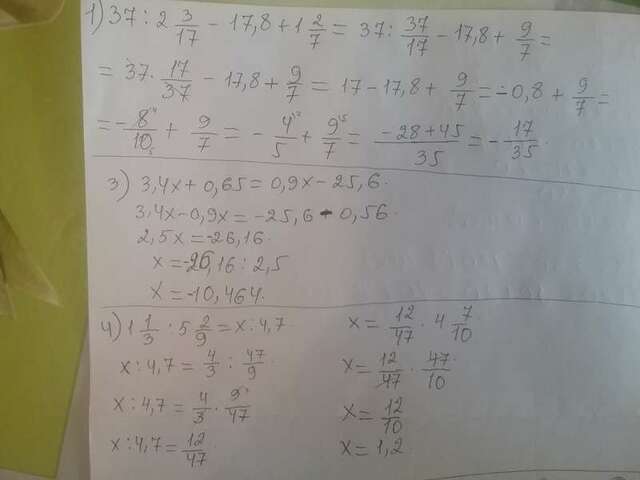 1) 37 : 2 3/17 - 17,8 + 1 2/7 = 37 : 37/17 - 17,8 + 9/7 =
= 37 · 17/37 - 17,8 + 9/7 = 17 - 17,8 + 9/7 = -0,8 + 9/7 =
= - 8/10 + 9/7 = - 4/5 + 9/7 = -28+45/35 = - 17/35.
3) 3,4x + 0,65 = 0,9x - 25,6.
3,4x - 0,9x = -25,6 - 0,56.
2,5x = -26,16.
x = -26,16 : 2,5
x = -10,464.
4) 1 1/3 : 5 2/9 = x : 4,7
x : 4,7 = 4/3 : 47/9.
x : 4,7 = 4/3 · 9/47
x : 4,7 = 12/47.
x = 12/47 · 4 7/10
x = 12/47 · 47/10.
x = 12/10
x = 1,2